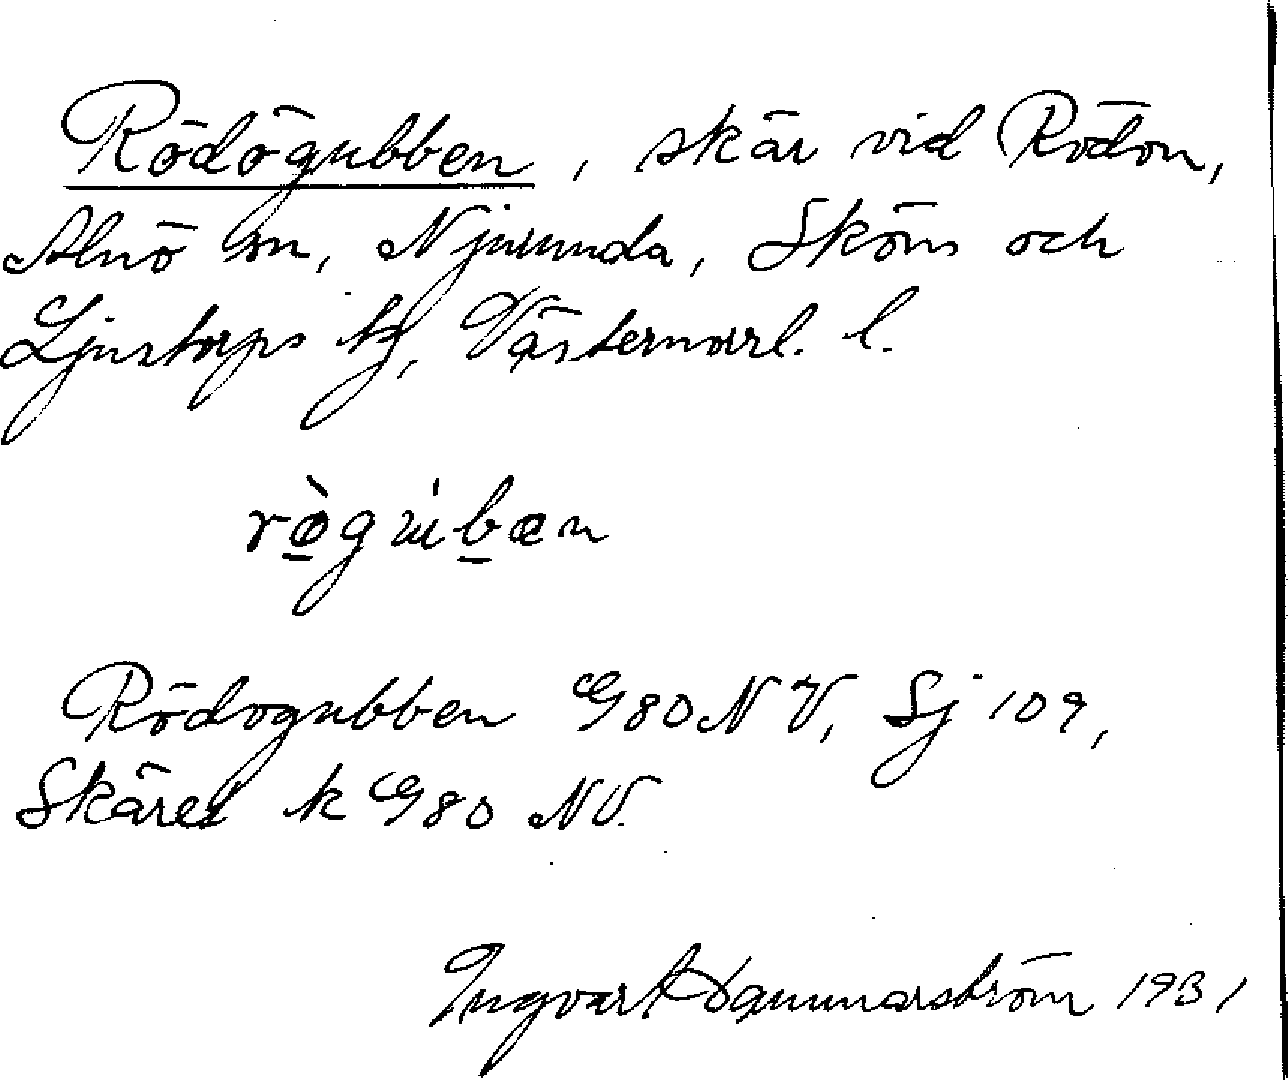 Rödögubben, skär vid Rödön,
Alnö sn, Njurunda, Sköns och
Ljustorps tg, Västernorrl. l.
rø̀gu̇bæn
Rödögubben G80NV, Sj 109,
Skäret k G80 NV.
Ingvart Hammarström 1931